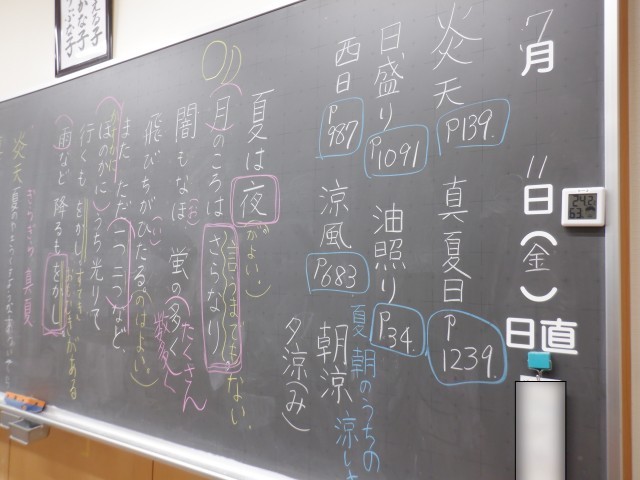 7月
11日(金)
日直
炎天 P139.
真夏日 P1239.
日盛り P1091
油照り P34.
夏 朝のうちの涼しさ
西日 P987
涼風 P683
朝涼
夕涼(み)
夏は夜(がよい。)
月のころはさらなり。
言うまでもない。
闇もなほ(お)
蛍の多く
たくさん
飛びちがひ(い)たる。(のはよい。)
また、ただ一つ二つなど、
ほのかにうち光りて
行くもをかし。
雨など降るもをかし。
炎天
真夏
24.2
63